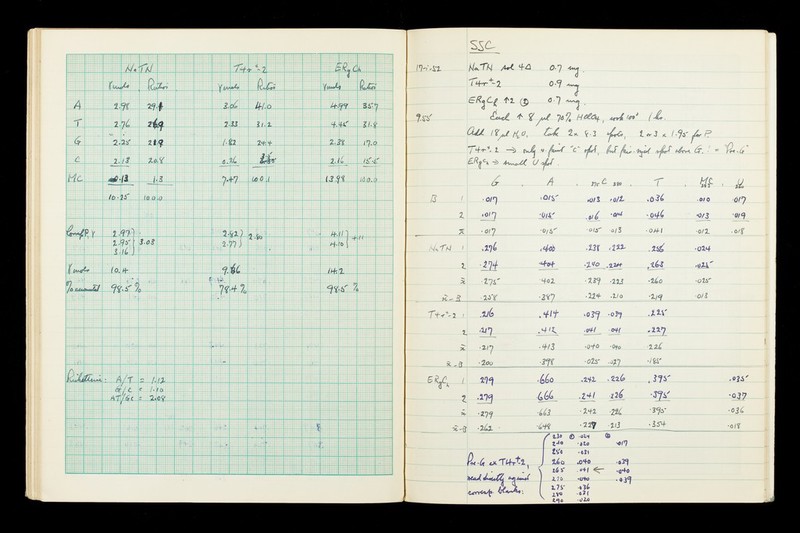 NaTN T4r±-2 ERgCh
γmols Ratios γmols Ratios γmols Ratios
A 2.98 29. 3.06 41.0 4.99 35.7
T 2.76 2.33 31.2 4.45 31.8
G 2.25 1.82 24.4 2.38 17.0
C 2.13 20.8 0.26 2.16 15.5
MC 0.13 1.3 7.47 100.1 13.98 100.0
10.25 100.0
P. γ 2.97 2.82 4.11
2.95 3.03 2.77 2.80 4.10 4.11
3.16
γmols 10.4 9. 14.2
% accounted 98.5 % 78.4 % 98.5 %
A/T = 1.12
G/C = 1.10
AT/GC = 2.08
SSC
17-i-52 NaTN sol 4Δ 0.7 mg
T4r±-2 0.9 mg
ERgCh ↑2 0.7 mg.
9.55 Each ↑ 8 μl 70% HClO4, 100° 1 hr.
Add 18 μl H2O. Take 2 x 8.3 spots, 2 x 3 x 1.95 for P.
T4r±.2 → only a faint "C" spot, but spot above G. : = "Pre-G"
ERgCh → small U spot.
G A C T MC U
B 1 .017 .015 .013 .012 .036 .010 .017
2 .017 .015 .016 .014 .046 .013 .019
x̄ .017 .015 .015 .013 .041 .012 .018
NaTN 1 .276 .400 .238 .222 .256 .024
2 .274 .404 .240 .224 .263 .025
x̄ .275 .402 .239 .223 .260 .025
x̄-B .258 .387 .224 .210 .219 .013
T4r±-2 1 .216 .414 .039 .039 .225
2 .217 .412 .041 .041 .227
x̄ .217 .413 .040 .040 .226
x̄-B .200 .398 .025 .027 .185
ERgCh 1 .279 .660 .242 .226 .395 .035
2 .279 .666 .241 .226 .395 .037
x̄ .279 .663 .242 .226 .395 .036
x̄-B .262 .648 .227 .213 .354 .018
230 ① .024 ②
240 .020 .017
250 .031
Pre-G ex T4r±.2, 260 .040 .039
265 .041 ← .040
read directly against 270 .040 .039
corresp blanks: 275 .036
280 .031
290 .020